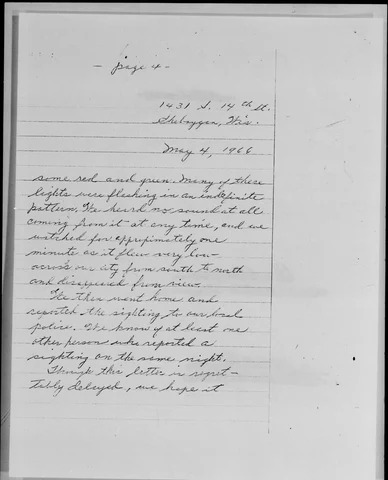 - page 4 -
1431 S. 14th St.
Sheboygan, Wis.
May 4, 1966
some red and green. Many of these
lights were flashing in an indefinite
pattern. We heard no sound at all
coming from it at any time, and we
watched for approximately one
minute as it flew very low
across our city from south to north
and disappeared from view.
We then went home and
reported the sighting to our local
police. We know of at least one
other person who reported a
sighting on the same night.
Though this letter is regret-
tably delayed, we hope it